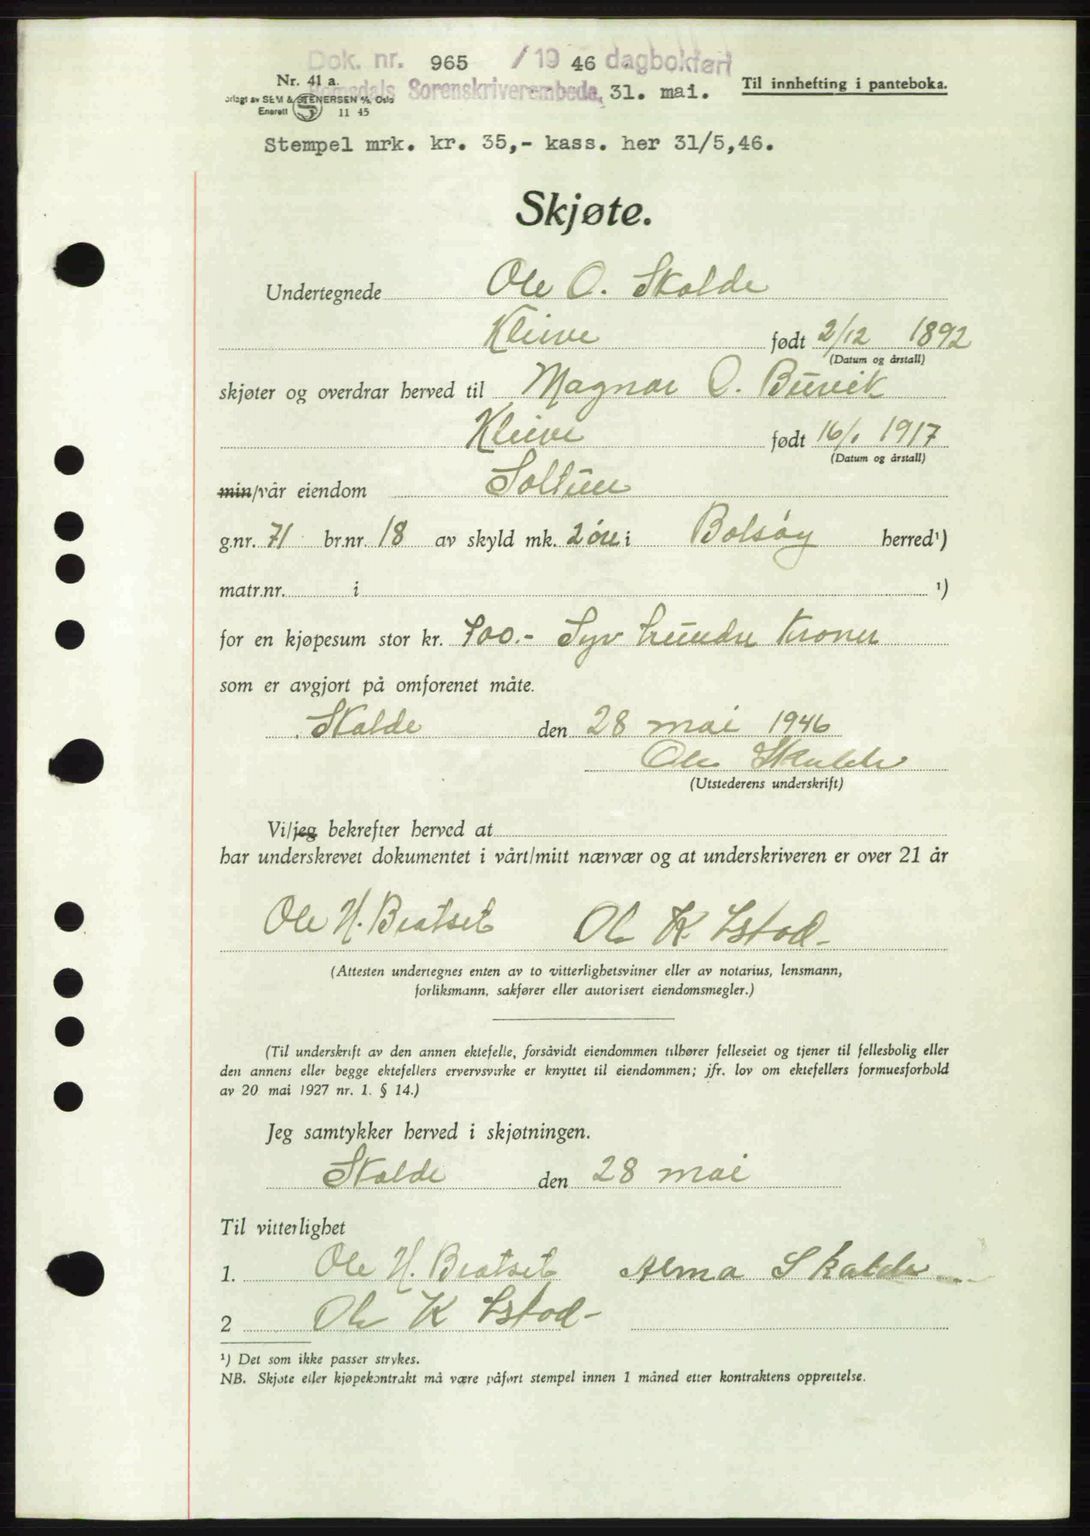 Dok. nr. 965 / 19 46 dagbokført
Nr. 41 a.
Romsdals Sorenskriverembede, 31. mai.
Til innhefting i panteboka.
SEM & STENERSEN A/S, Oslo
Enerett 11 45
Stempel mrk. kr. 35,- kass. her 31/5,46.
Skjøte.
Undertegnede Ole O. Skalde
Kleive født 2/12 1892
(Datum og årstall)
skjøter og overdrar herved til Magnar O. Burvik
Kleive født 16/1 1917
(Datum og årstall)
min/vår eiendom Soltun
g.nr. 71 br.nr. 18 av skyld mk. 2 øre i Bolsøy herred¹)
matr.nr. i ¹)
for en kjøpesum stor kr. 700.- Syv hundre Kroner
som er avgjort på omforenet måte.
Skalde den 28 mai 1946
Ole Skalde
(Utstederens underskrift)
Vi/jeg bekrefter herved at
har underskrevet dokumentet i vårt/mitt nærvær og at underskriveren er over 21 år
Ole H. Bratset Ole K
(Attesten undertegnes enten av to vitterlighetsvitner eller av notarius, lensmann,
forliksmann, sakfører eller autorisert eiendomsmegler.)
(Til underskrift av den annen ektefelle, forsåvidt eiendommen tilhører felleseiet og tjener til fellesbolig eller
den annens eller begge ektefellers ervervsvirke er knyttet til eiendommen; jfr. lov om ektefellers formuesforhold
av 20 mai 1927 nr. 1. § 14.)
Jeg samtykker herved i skjøtningen.
Skalde den 28 mai
Til vitterlighet
1. Ole H. Bratset Alma Skalde
2 Ole K
¹) Det som ikke passer strykes.
NB. Skjøte eller kjøpekontrakt må være påført stempel innen 1 måned etter kontraktens opprettelse.